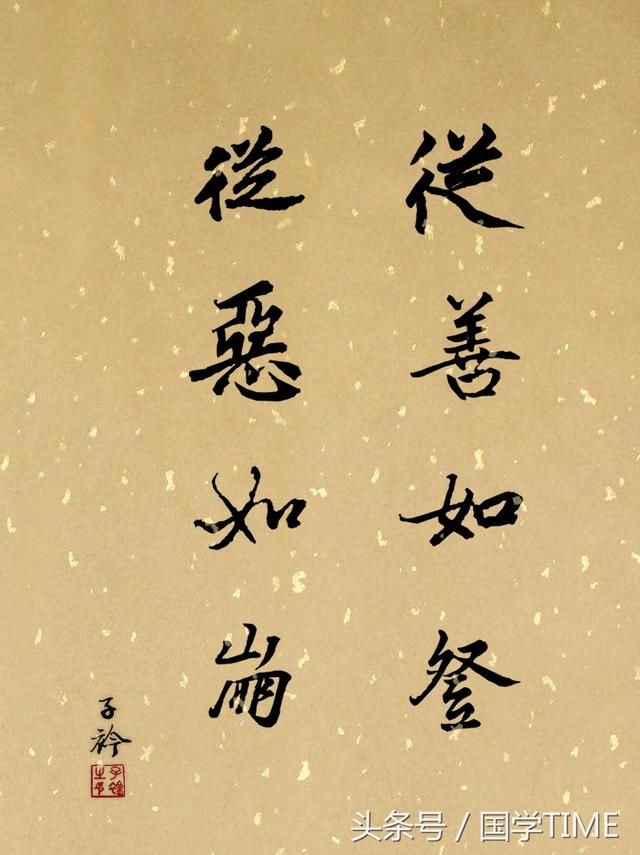 從善如登
從惡如崩
子衿
头条号 / 国学TIME